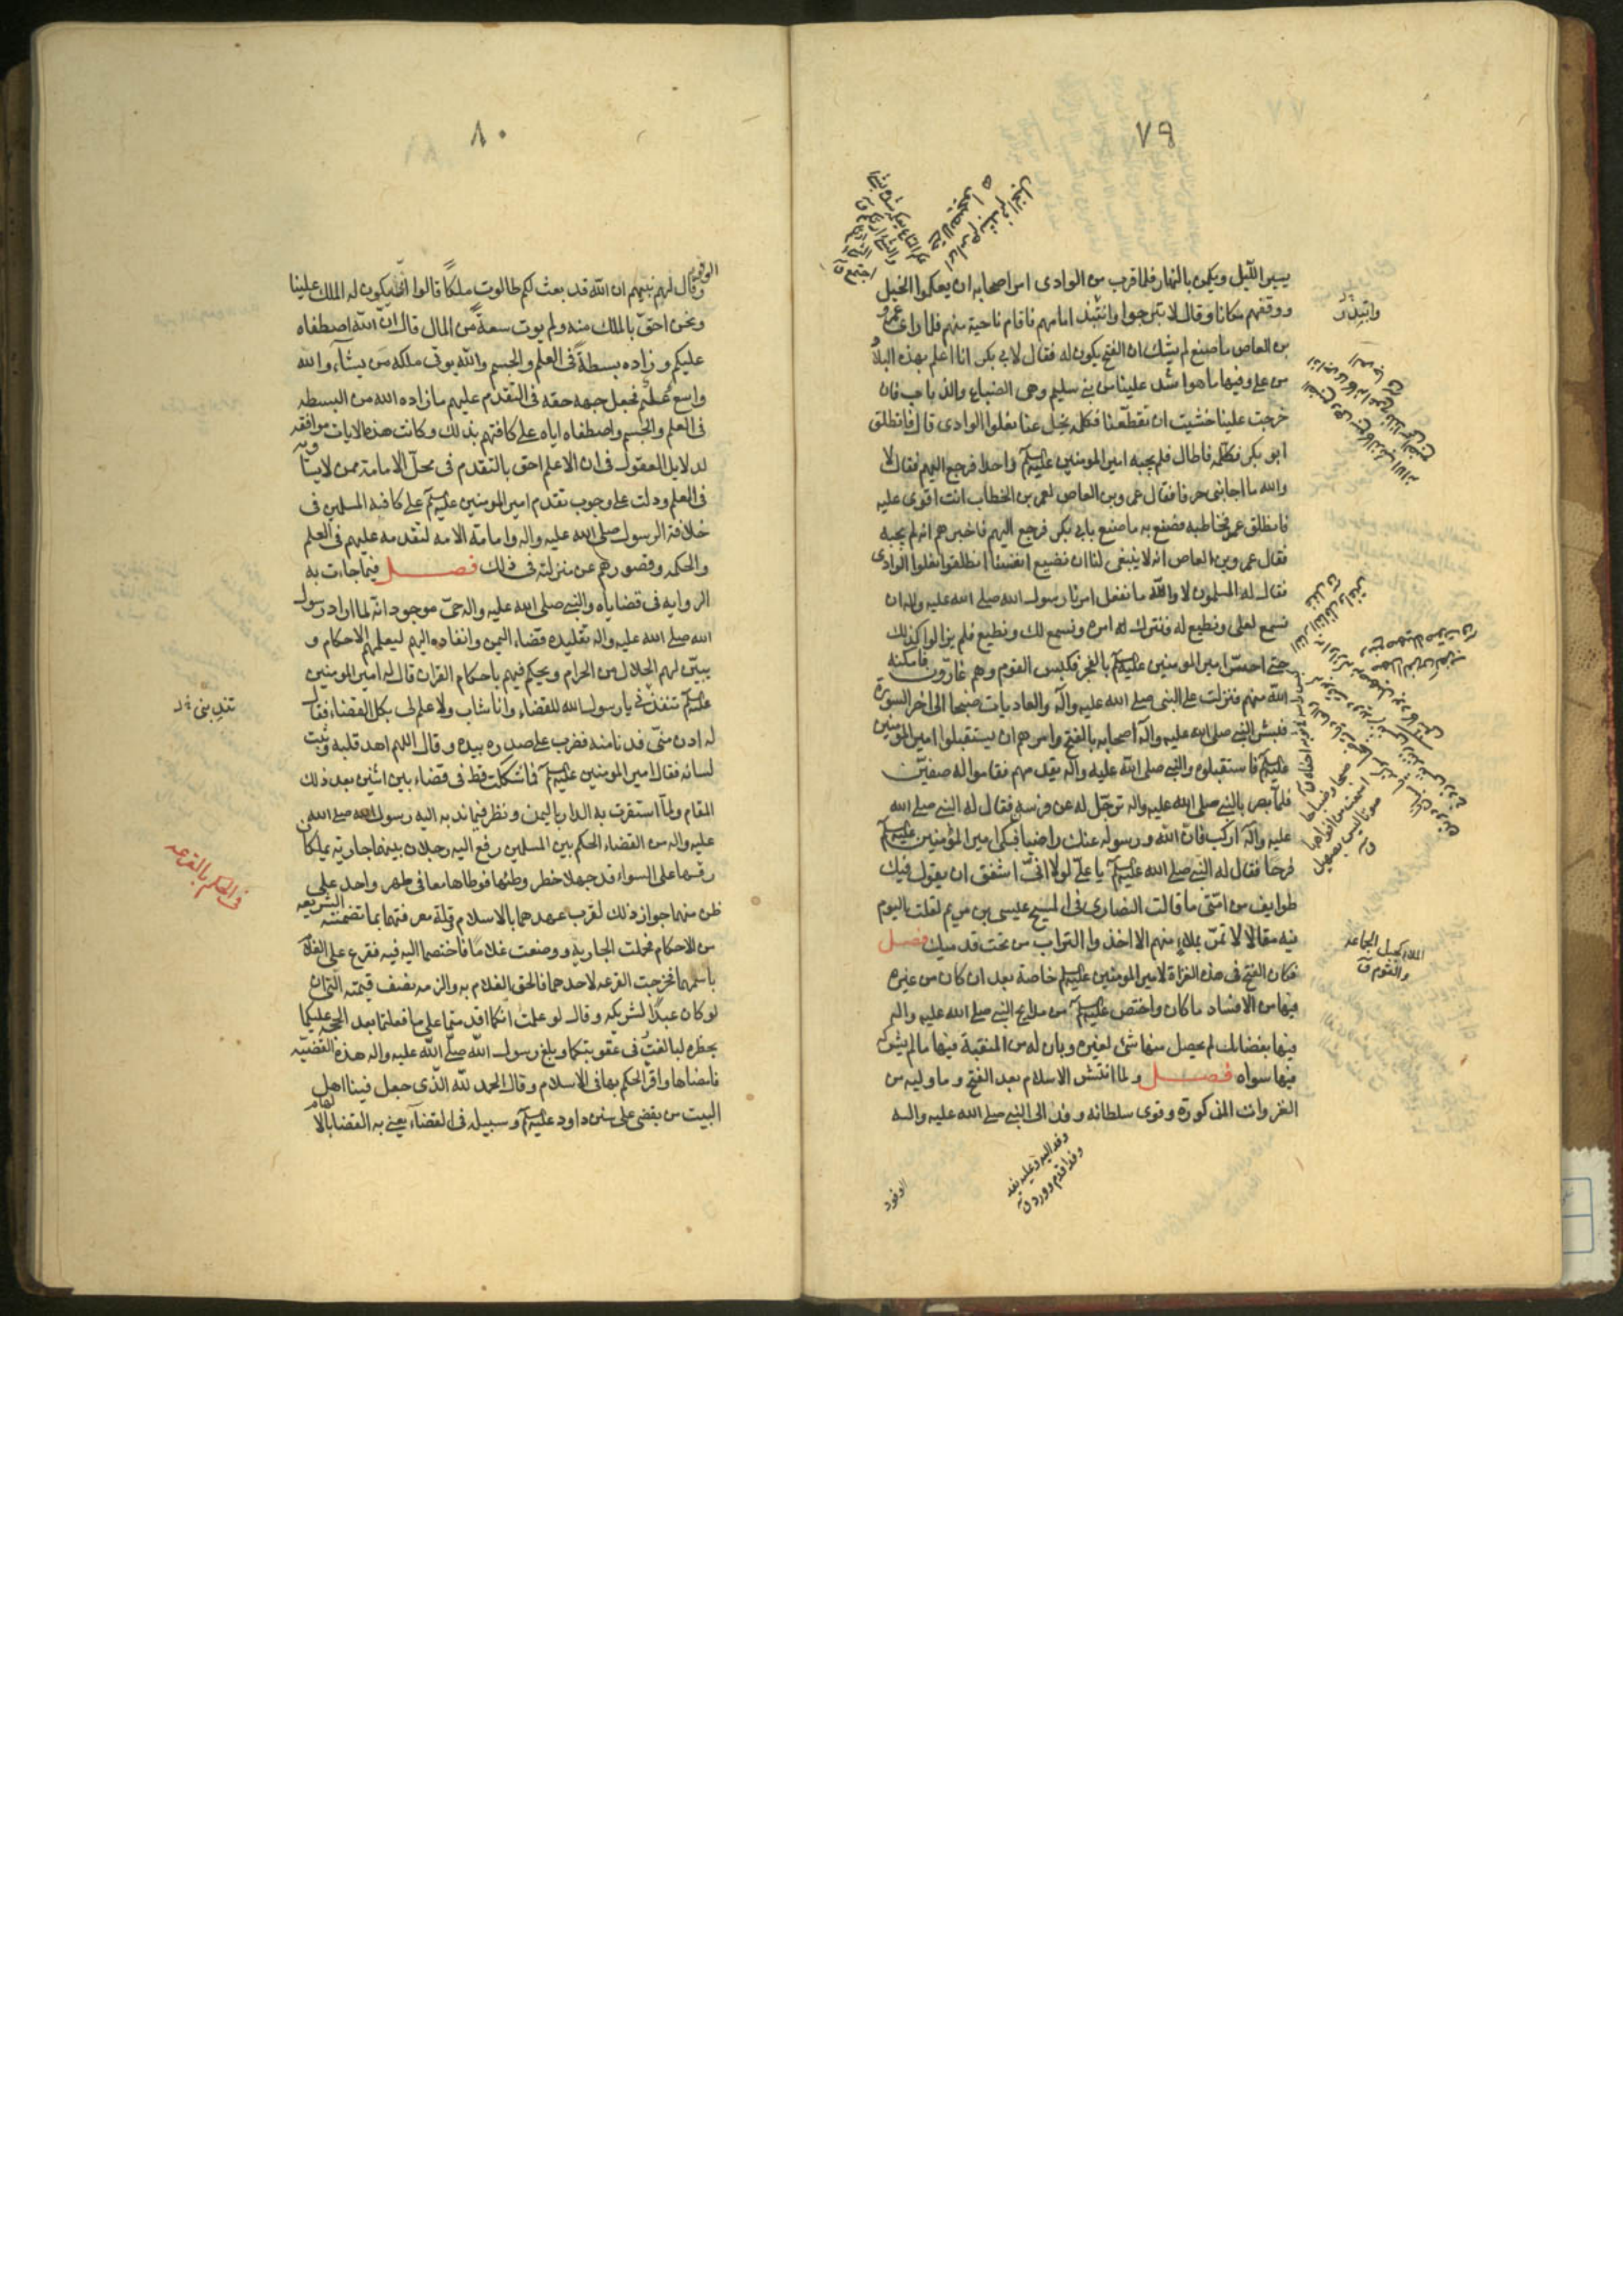 ٧٩
يسير الليل ويكمن بالنهار فلما قرب من الوادى امر اصحابه ان يعكموا الخيل
ووقفهم مكانا وقال لا تبرحوا وانتبذ امامهم فاقام ناحية منهم فلما راى عمرو
بن العاص ما صنع لم يشك ان الفتح يكون له فقال لابى بكر انا اعلم بهذه البلاد
من على وفيها ما هو اشد علينا من بنى سليم وهى الضباع والذياب فان
خرجت علينا خشيت ان تقطعنا فكلمه يخل عنا نعلوا الوادى قال فانطلق
ابو بكر فكلمه فاطال فلم يجبه امير المومنين عليه السلم واحدا فرجع اليهم فقال لا
والله ما اجابنى حرفا فقال عمرو بن العاص لعمر بن الخطاب انت اقوى عليه
فانطلق عمر فخاطبه فصنع به ما صنع بابى بكر فرجع اليهم فاخبرهم انه لم يجبه
فقال عمرو بن العاص انه لا ينبغى لنا ان نضيع انفسنا انطلقوا نعلوا الوادى
فقال له المسلمون لا والله ما نفعل امرنا رسول الله صلى الله عليه واله ان
نسمع لعلى ونطيع له فنترك له امره ونسمع لك ونطيع فلم يزالوا كذلك
حتى احس امير المومنين عليه السلم بالفجر فكبس القوم وهم غارون فامكنه
الله منهم فنزلت على النبى صلى الله عليه وآله والعاديات ضبحا الى اخر السورة
فبشر النبى صلى الله عليه وآله اصحابه بالفتح وامرهم ان يستقبلوا امير المومنين
عليه السلم فاستقبلوه والنبى صلى الله عليه وآله يقدمهم فقاموا له صفين
فلما بصر بالنبى صلى الله عليه واله ترجل له عن فرسه فقال له النبى صلى الله
عليه وآله اركب فان الله ورسوله عنك راضيا فبكى امير المؤمنين عليه السلم
فرحا فقال له النبى صلى الله عليه السلم يا على لولا انى اشفق ان يقول فيك
طوايف من امتى ما قالت النصارى فى المسيح عيسى بن مريم لقلت اليوم
فيه مقالا لا تمر بملاء منهم الا اخذوا التراب من تحت قدميك فصل
فكان الفتح فى هذه الغزاة لامير المومنين عليه السلم خاصة بعد ان كان من غيره
فيها من الافساد ما كان واختص عليه السلم من مديح النبى صلى الله عليه واله
فيها بفضايل لم يحصل منها شئ لغيره وبان له من المنقبة فيها ما لم يشركه
فيها سواه فصل ولما انتشر الاسلام بعد الفتح وما وليه من
الغزوات المذكورة وقوى سلطانه وفد الى النبى صلى الله عليه واله
الوفود
الملاء كجبل الجماعه
والقوم ق
وفد اليه وعليه يفد
وفدا قدم وورد ق
٨٠
وقال لهم نبيهم ان الله قد بعث لكم طالوت ملكا قالوا انى يكون له الملك علينا
ونحن احق بالملك منه ولم يوت سعة من المال قال ان الله اصطفاه
عليكم وزاده بسطة فى العلم والجسم والله يوتى ملكه من يشآء والله
واسع عليم فجعل جهة حقه فى التقدم عليهم ما زاده الله من البسطه
فى العلم والجسم واصطفاه اياه على كافتهم بذلك وكانت هذه الايات موافقه
لدلايل العقول فى ان الاعلم احق بالتقدم فى محل الامامة ممن لا يساويه
فى العلم ودلت على وجوب تقدم امير المومنين عليه السلم على كافة المسلمين فى
خلافة الرسول صلى الله عليه واله وامامة الامه لتقدمه عليهم فى العلم
والحكمه وقصورهم عن منزلته فى ذلك فصل فيما جاءت به
الروايه فى قضاياه والنبى صلى الله عليه واله حى موجود انه لما اراد رسول
الله صلى الله عليه واله تقليده قضاء اليمن وانفاذه اليهم ليعلمهم الاحكام و
يبين لهم الحلال من الحرام ويحكم فيهم باحكام القران قال له امير المومنين
عليه السلم تنفذنى يا رسول الله للقضاء وانا شاب ولا علم لى بكل القضاء فقال
له ادن منى فدنا منه فضرب على صدره بيده وقال اللهم اهد قلبه وثبت
لسانه فقال امير المومنين عليه السلم فما شككت قط فى قضاء بين اثنين بعد ذلك
المقام ولما استقرت به الدار باليمن ونظر فيما ندبه اليه رسول الله صلى الله
عليه واله من القضاء الحكم بين المسلمين رفع اليه رجلان بينهما جارية يملكان
رقها على السواء قد جهلا حظر وطئها فوطاها معا فى طهر واحد على
ظن منهما جواز ذلك لقرب عهدهما بالاسلام وقلة معرفتهما بما تضمنته الشريعه
من الاحكام فحملت الجارية ووضعت غلاما فاختصما اليه فيه فقرع على الغلام
باسمهما فخرجت القرعه لاحدهما فالحق الغلام به والزمه نصف قيمته ان
لو كان عبدا لشريكه وقال لو علمت انكما اقدمتما على ما فعلتما بعد الحجة عليكما
بحظره لبالغت فى عقوبتكما وبلغ رسول الله صلى الله عليه واله هذه القضيه
فامضاها واقر الحكم بها فى الاسلام وقال الحمد لله الذى جعل فينا اهل
البيت من يقضى على سنن داود عليه السلم وسبيله فى القضآء يعنى به القضا بالالهام
فى الحكم بالقرعه